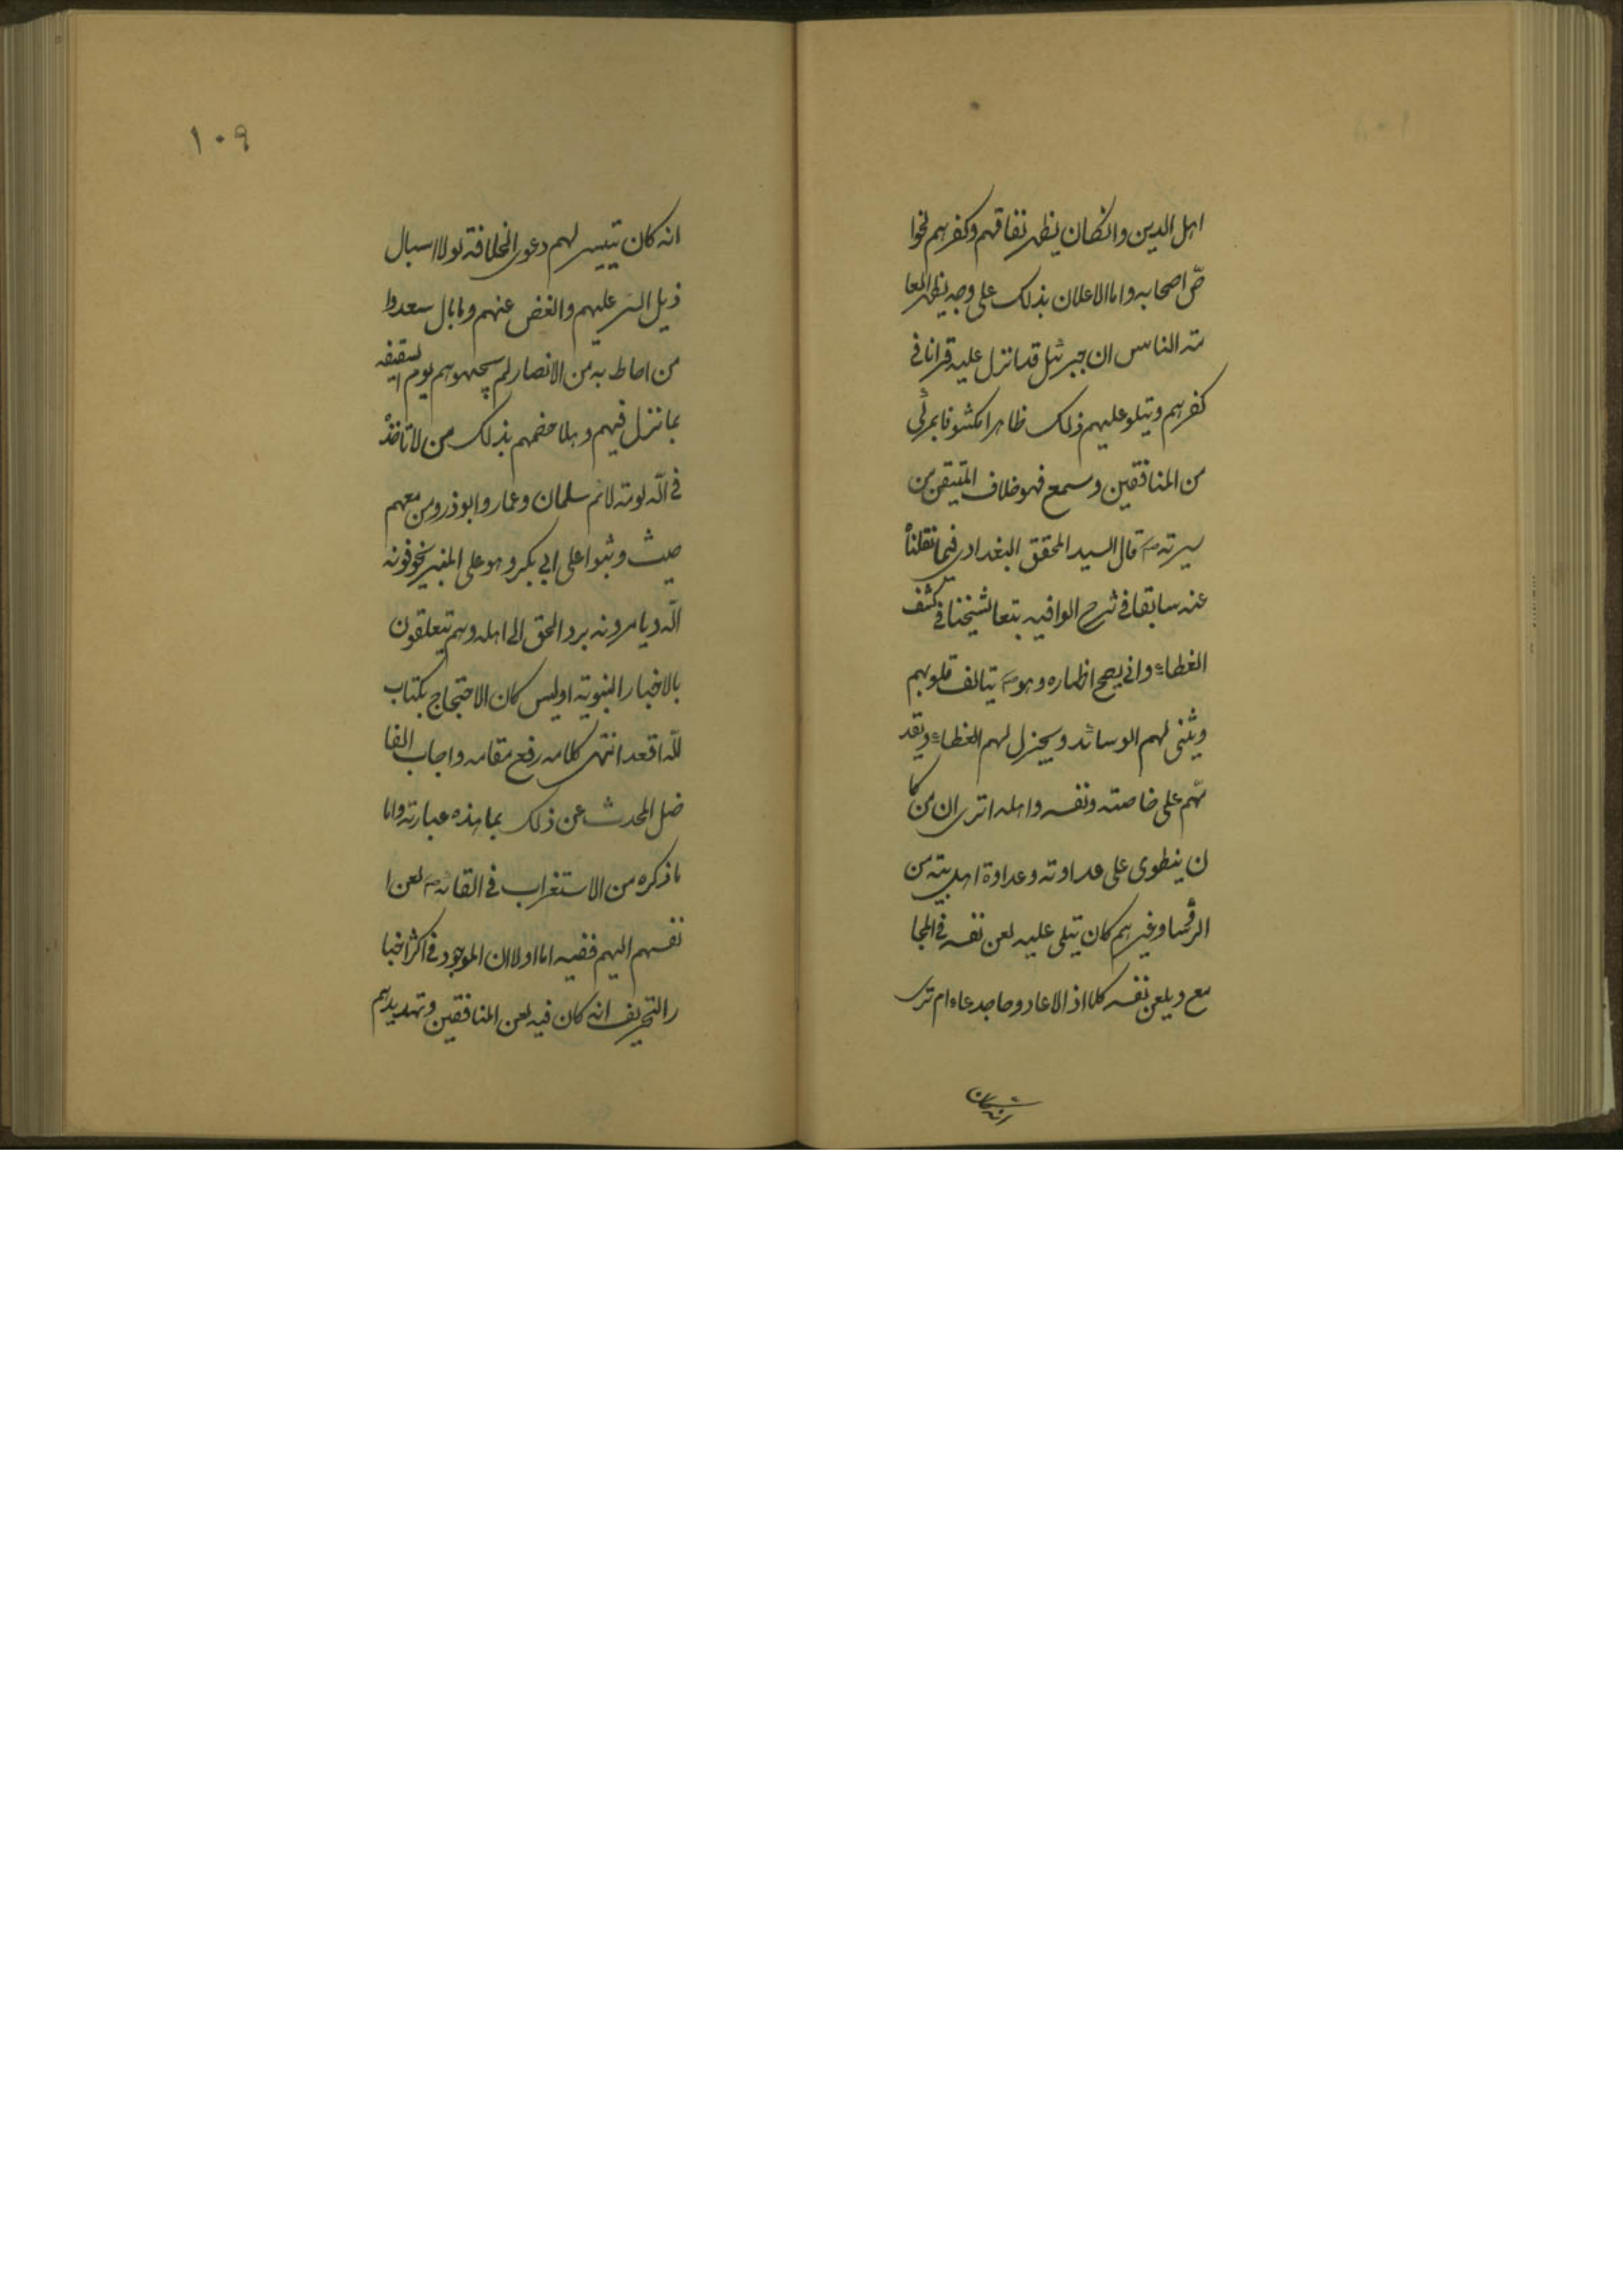 اهل الدين وان كان يظهر نفاقهم وكفرهم لخوا
صّ اصحابه واما الاعلان بذلك على وجه يظهر لعا
مة الناس ان جبرئيل قد انزل عليه قرانا في
كفرهم ويتلو عليهم ذلك ظاهرا مكشوفا بمرئى
من المنافقين ومسمع فهو خلاف المتيقن من
سيرته ص قال السيد المحقق البغدادي فيما نقلناه
عنه سابقا في شرح الوافيه تبعا لشيخنا في كشف
الغطاء وانى يصح اظهاره وهو ص يتالف قلوبهم
ويثنى لهم الوسائد ويجزل لهم العطاء ويقد
مهم على خاصته ونفسه واهله اترى ان من كا
ن ينطوى على عداوته وعداوة اهلبيته من
الرؤسا وغيرهم كان يتلى عليه لعن نفسه في المجا
مع ويلعن نفسه كلما اذ الاعاد وحاجد عاء ام ترى
انه كان
١٠٩
انه كان يتيسر لهم دعوى الخلافة لولا اسبال
ذيل الستر عليهم والغض عنهم وما بال سعد وا
من احاط به من الانصار لم يجبهوهم يوم السقيفه
بما نزل فيهم وهلا خصمهم بذلك من لا تاخذه
في اللّه لومة لائم سلمان وعمار وابوذر ومن معهم
حيث وثبوا على ابي بكر وهو على المنبر يخوفونه
اللّه ويامرونه برد الحق الى اهله وهم يتعلقون
بالاخبار النبوية اوليس كان الاحتجاج بكتاب
اللّه اقعد انتهى كلامه رفع مقامه واجاب الفا
ضل المحدث عن ذلك بما هذه عبارته واما
ما ذكره من الاستغراب في القائه ص لعن ا
نفسهم اليهم ففيه اما اولا ان الموجود في اكثر اخبا
ر التحريف انه كان فيه لعن المنافقين وتهديدهم